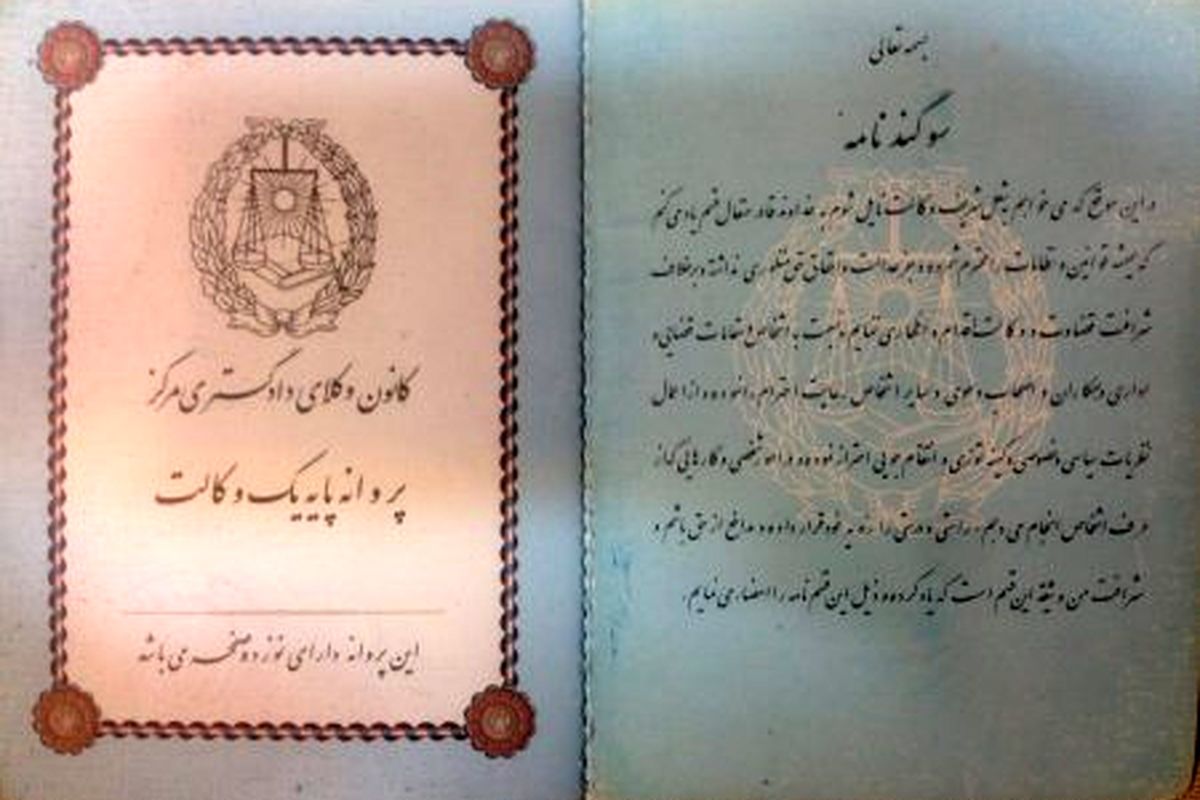 کانون وکلای دادگستری مرکز
پروانه پایه یک وکالت
این پروانه دارای نوزده صفحه می باشد
بسمه تعالی
سوگند نامه
در این موقع که می خواهم به شغل شریف وکالت نایل شوم به خداوند قادر متعال قسم یاد می کنم
که همیشه قوانین و نظامات را محترم شمرده و جز عدالت و احقاق حق منظوری نداشته و برخلاف
شرافت قضاوت و وکالت اقدام و اظهاری ننمایم و نسبت به اشخاص و مقامات قضایی و
اداری و همکاران و اصحاب دعوی و سایر اشخاص رعایت احترام را نموده و از اعمال
نظریات سیاسی و خصوصی و کینه توزی و انتقام جویی احتراز نموده و در امور شخصی و کارهایی که از
طرف اشخاص انجام می دهم، راستی و درستی را رویه خود قرار داده و مدافع از حق باشم و
شرافت من وثیقه این قسم است که یاد کرده و ذیل این قسم نامه را امضاء می نمایم.